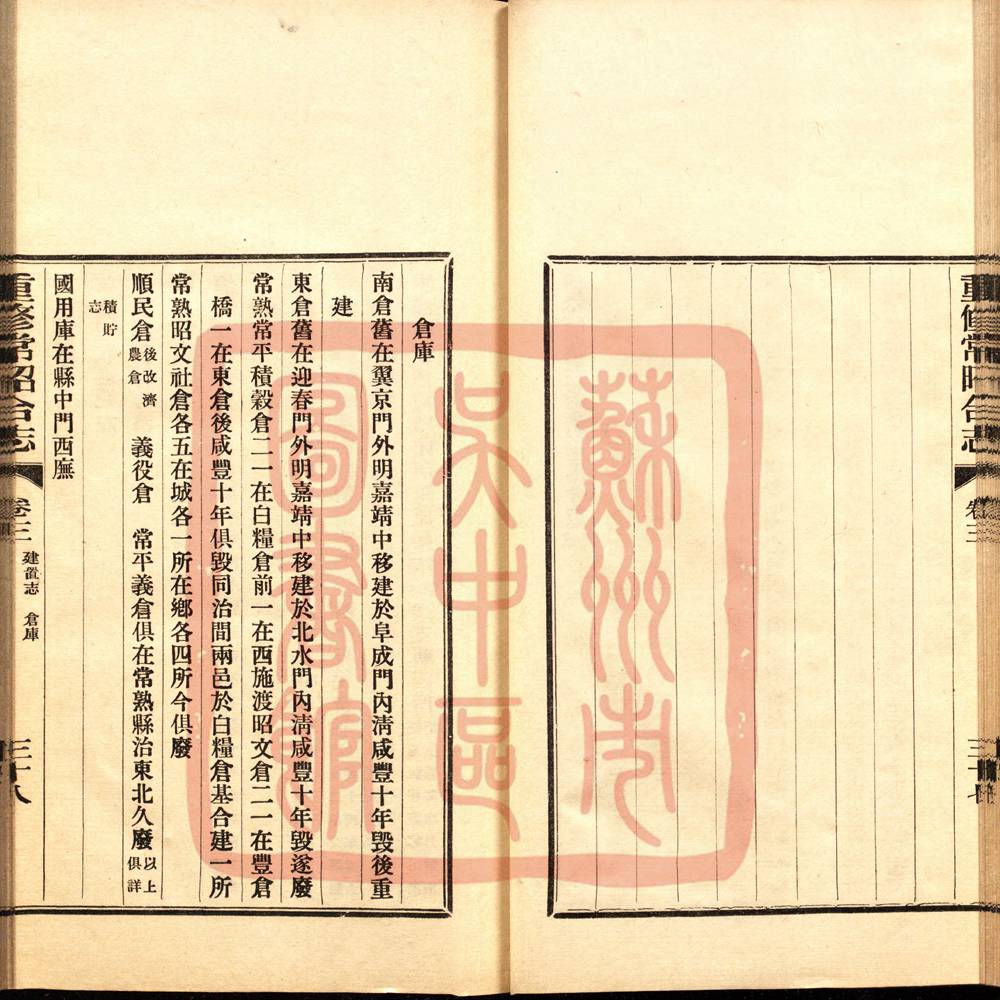 重修常昭合志
卷三
三十七
倉庫
南倉舊在翼京門外明嘉靖中移建於阜成門內清咸豐十年毀後重
建
東倉舊在迎春門外明嘉靖中移建於北水門內清咸豐十年毀遂廢
常熟常平積穀倉二一在白糧倉前一在西施渡昭文倉二一在豐倉
橋一在東倉後咸豐十年俱毀同治間兩邑於白糧倉基合建一所
常熟昭文社倉各五在城各一所在鄉各四所今俱廢
順民倉後改濟農倉 義役倉 常平義倉俱在常熟縣治東北久廢以上俱詳
積貯志
國用庫在縣中門西廡
重修常昭合志
卷三
建置志 倉庫
三十八
蘇州市
吳中區
圖書館